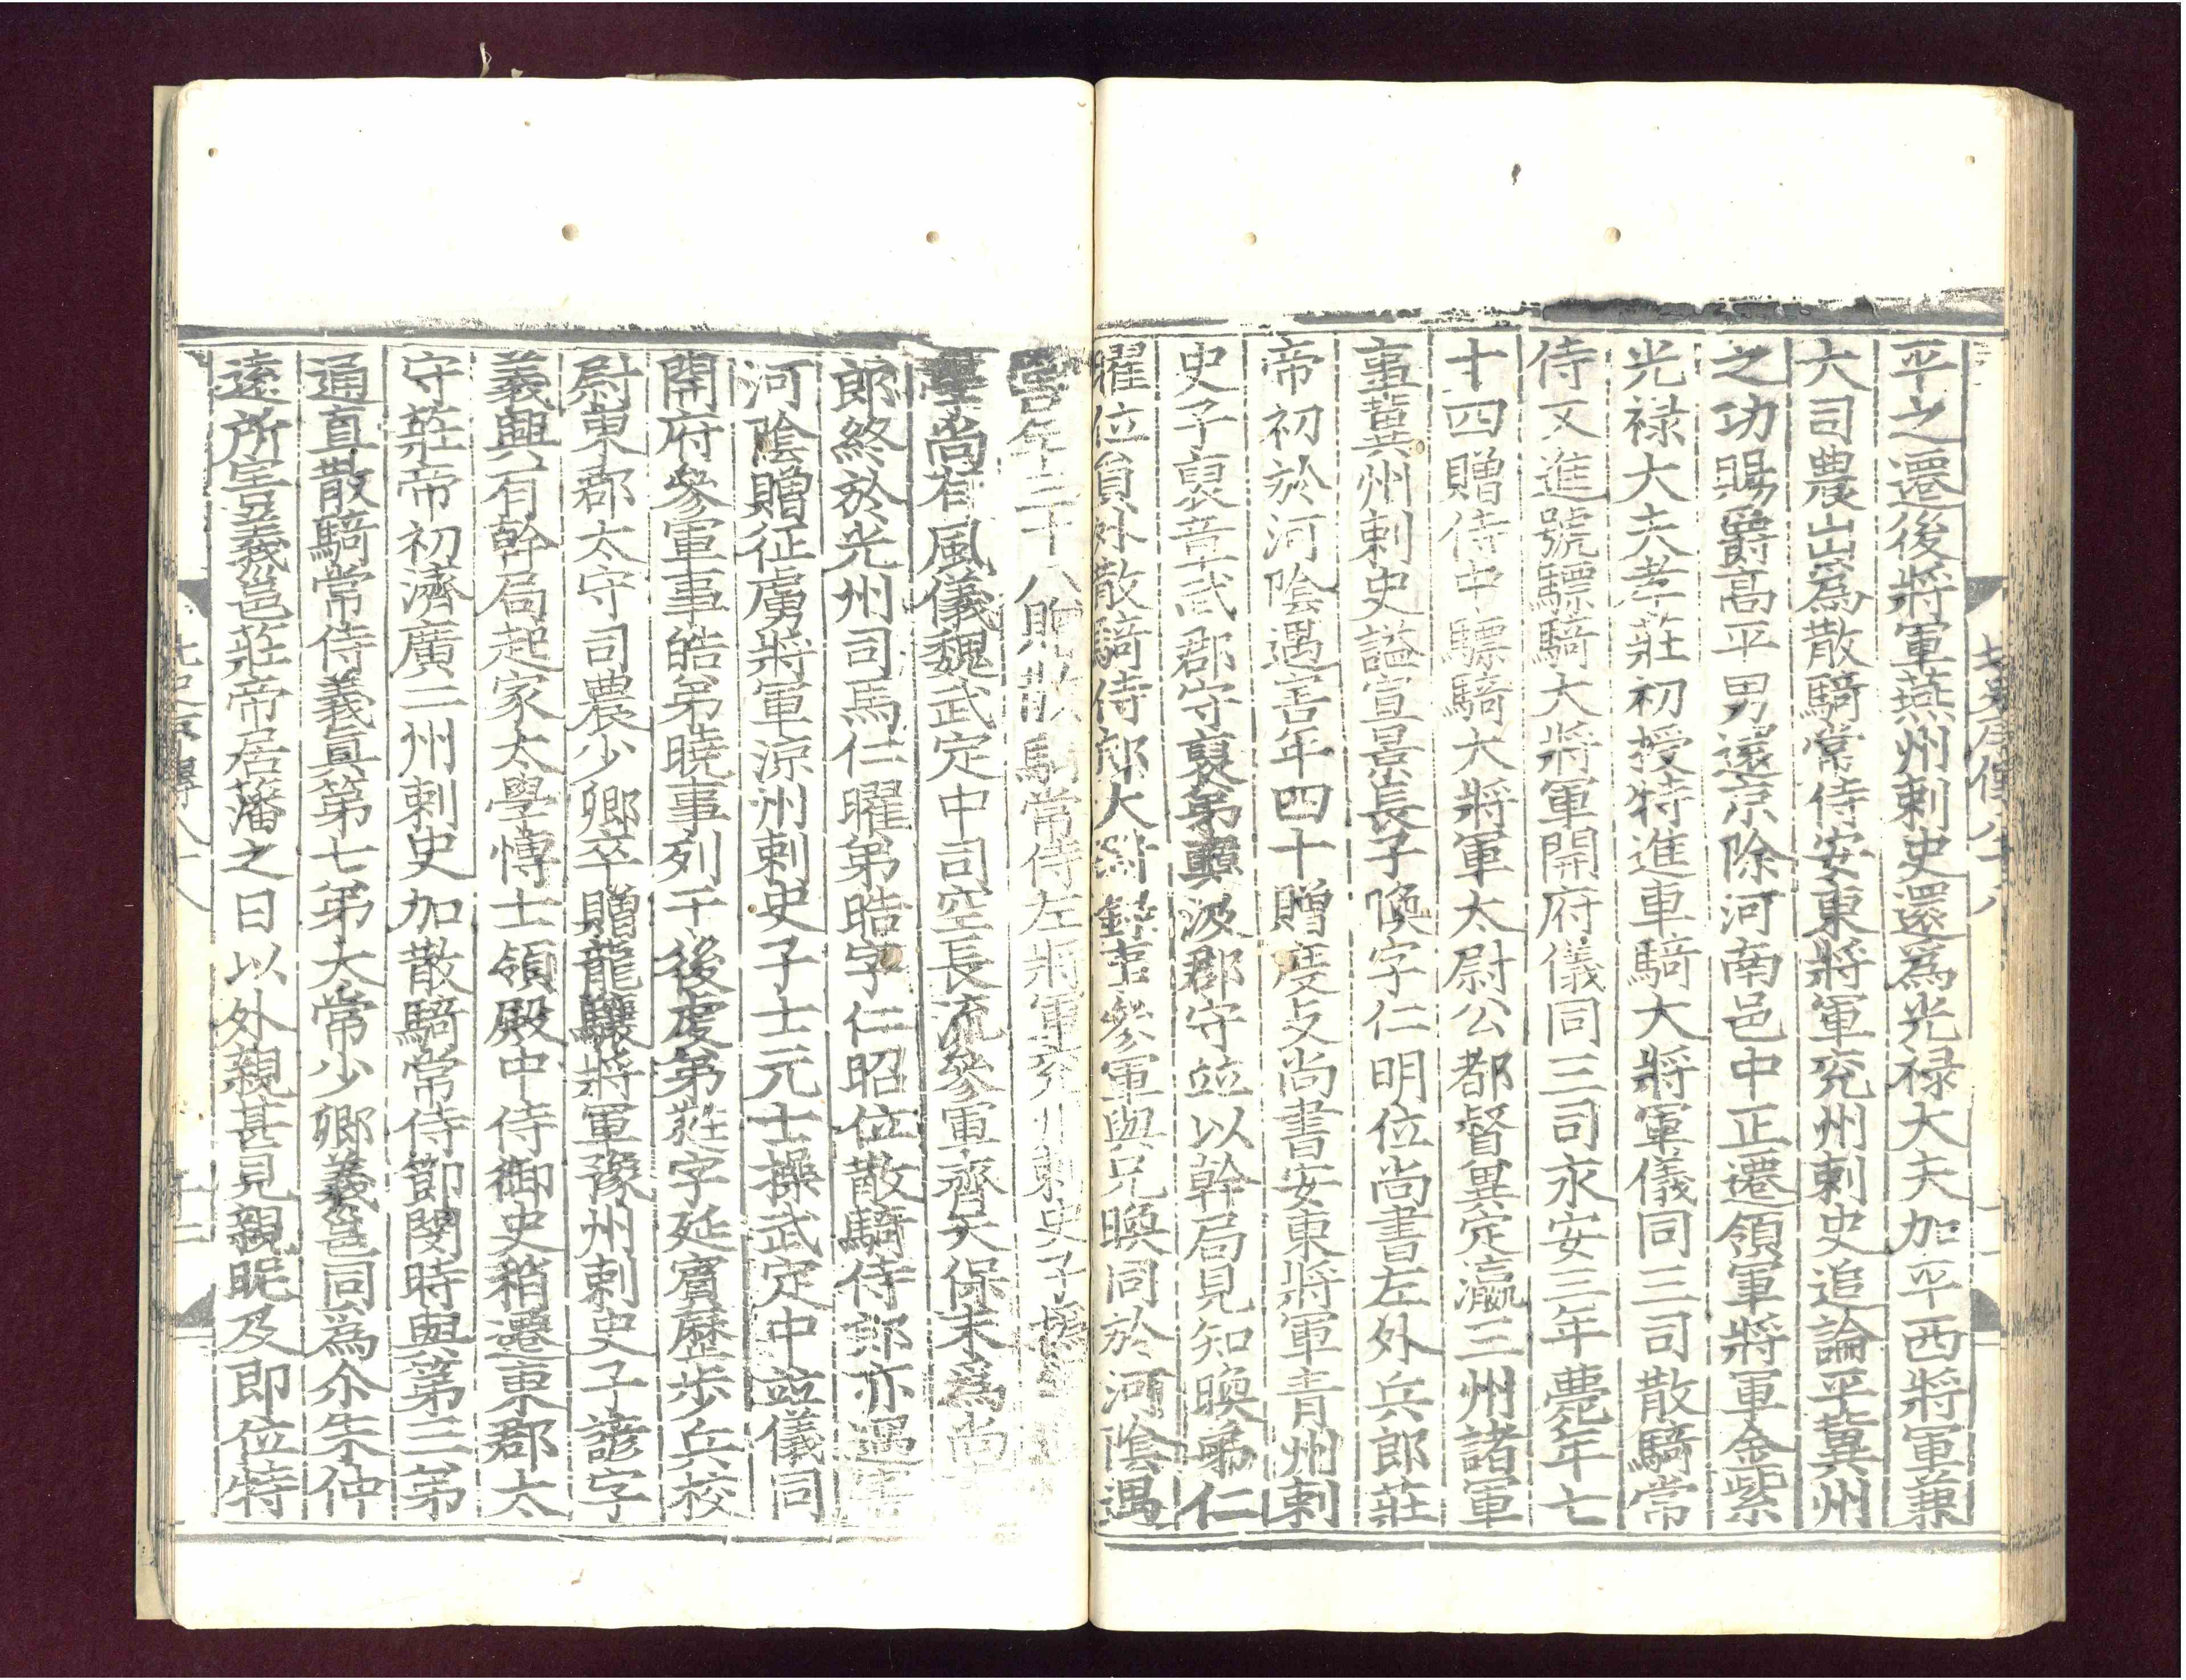 平之遷後將軍燕州刺史還爲光祿大夫加平西將軍兼
大司農出爲散騎常侍安東將軍兖州刺史追論平冀州
之功賜爵高平男還京除河南邑中正遷領軍將軍金紫
光禄大夫孝莊初授特進車騎大將軍儀同三司散騎常
侍又進號驃騎大將軍開府儀同三司永安三年薨年七
十四贈侍中驃騎大將軍太尉公都督異定瀛三州諸軍
事冀州刺史謚宣景長子喚字仁明位尚書左外兵郎莊
帝初於河陰遇害年四十贈度支尚書安東將軍青州刺
史子裒章武郡守裒弟興汲郡守並以幹局見知喚弟仁
曜位員外散騎侍郎大尉録事參軍與兄喚同於河陰遇
害年三十八贈散騎常侍左將軍兖州刺史子
尚有風儀魏武定中司空長流參軍齊天保末爲尚
郎終於光州司馬仁曜弟晧字仁昭位散騎侍郎亦遇害
河陰贈征虜將軍涼州刺史子士元士操武定中並儀同
開府參軍事皓弟曉事列于後虔弟蕤字延賓歷步兵校
尉東郡太守司農少卿卒贈龍驤將軍豫州刺史子諺字
義興有幹局起家太學博士領殿中侍御史稍遷東郡太
守莊帝初濟廣二州刺史加散騎常侍節閔時與第三弟
通直散騎常侍義眞第七弟太常少卿義邕同爲尒朱仲
遠所害義邕莊帝居藩之日以外親甚見親昵及即位特
北史列傳八十八
十二